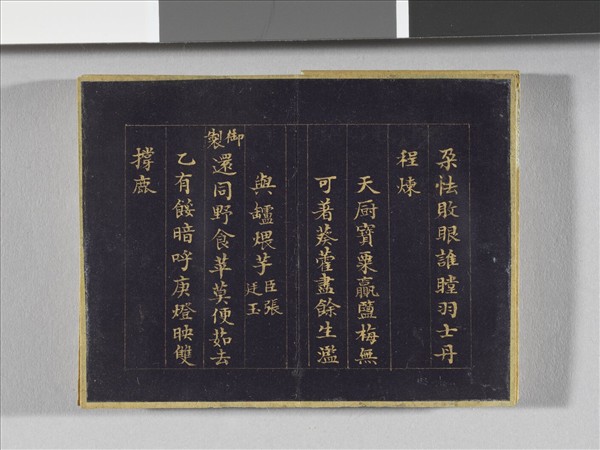 朶怯敗眼誰瞠羽士丹
程煉
天厨寶粟羸鹽梅無
可著葵藿盡餘生濫
與罏煨芋臣張廷玉
御製還同野食苹莫便茹去
乙有餒暗呼庚燈映雙
撐鹿